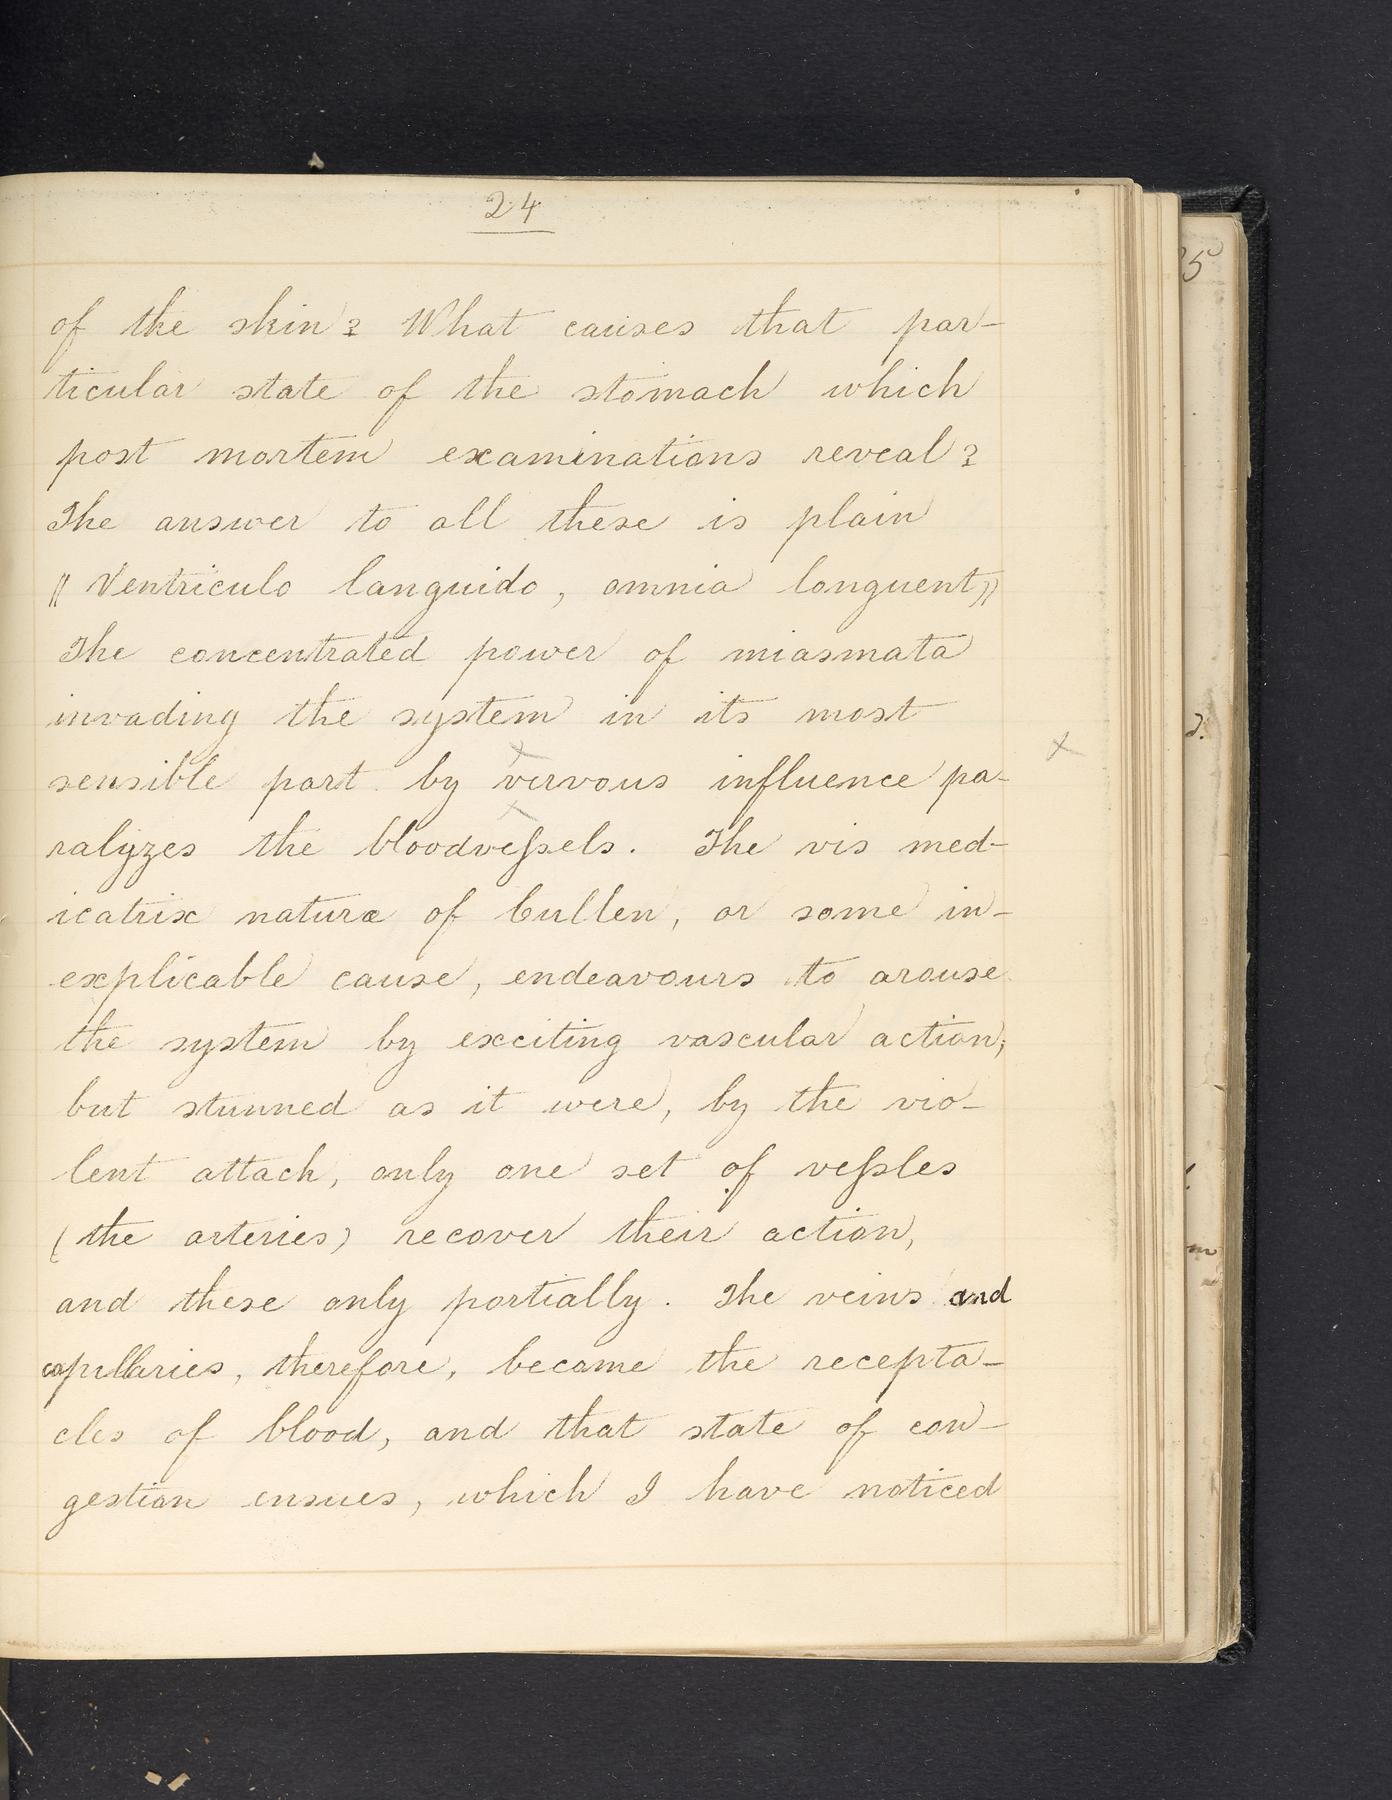 24
of the skin? What causes that par-
ticular state of the stomach which
post mortem examinations reveal?
The answer to all these is plain
"Ventriculo languido, omnia longuent"
The concentrated power of miasmata
invading the system in its most
sensible part by vervous influence pa-
ralyzes the bloodveſsels. The vis med-
icatrix naturæ of Cullen, or some in-
explicable cause, endeavours to arouse
the system by exciting vascular action;
but stunned as it were, by the vio-
lent attach, only one set of veſsles
(the arteries) recover their action,
and these only partially. The veins and
capillaries, therefore, become the recepta-
cles of blood, and that state of con-
gestion ensues, which I have noticed